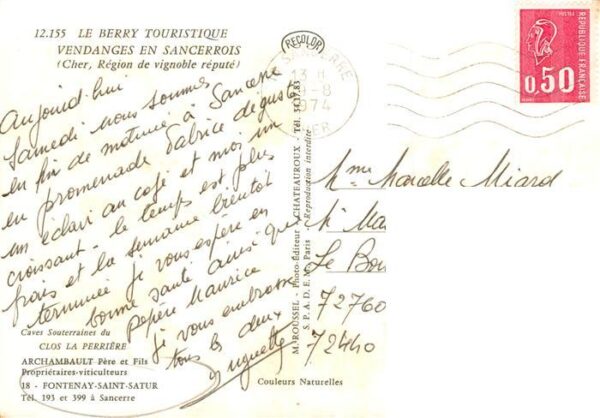 12.155 LE BERRY TOURISTIQUE
VENDANGES EN SANCERROIS
(Cher, Région de vignoble réputé)
Aujourd'hui
Samedi nous sommes
en fin de matinée à Sancerre
en promenade Fabrice déguste
un éclair au café et moi un
croissant - le temps est plus
frais et la semaine bientôt
terminée je vous espère en
bonne santé ainsi que
Pépère Maurice
je vous embrasse
tous les deux
Huguette
Caves Souterraines du
CLOS LA PERRIÈRE
ARCHAMBAULT Père et Fils
Propriétaires-viticulteurs
18 - FONTENAY-SAINT-SATUR
Tél. 193 et 399 à Sancerre
RECOLOR
M. ROUSSEL - Photo-Éditeur - CHATEAUROUX - Tél. 34.17.83
S. P. A. D. E. M. Paris Reproduction interdite
Couleurs Naturelles
SANCERRE
13
8
1974
CHER
RÉPUBLIQUE FRANÇAISE
0,50
Mme Marcelle Miard
Le Bou
72760
72440